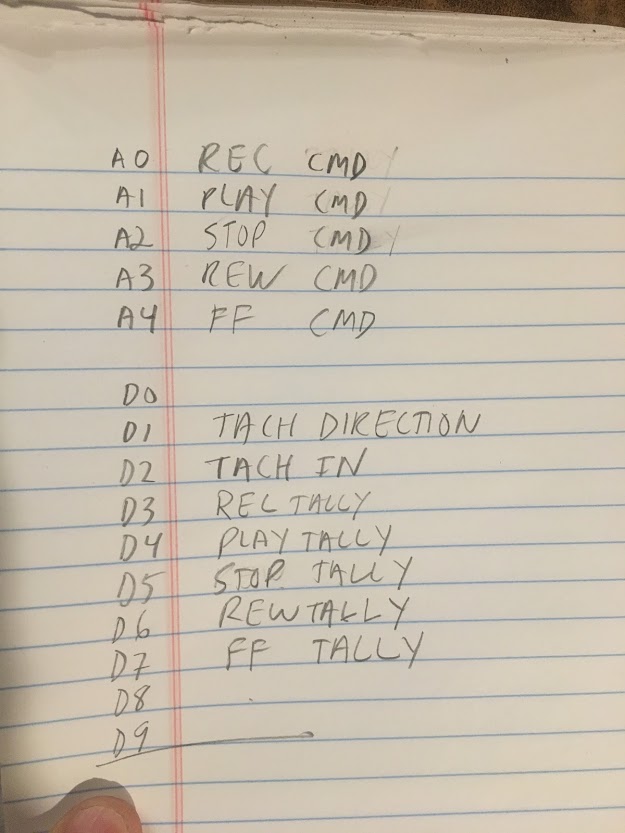 A0 REC CMD
A1 PLAY CMD
A2 STOP CMD
A3 REW CMD
A4 FF CMD
D0
D1 TACH DIRECTION
D2 TACH IN
D3 REC TALLY
D4 PLAY TALLY
D5 STOP TALLY
D6 REW TALLY
D7 FF TALLY
D8
D9